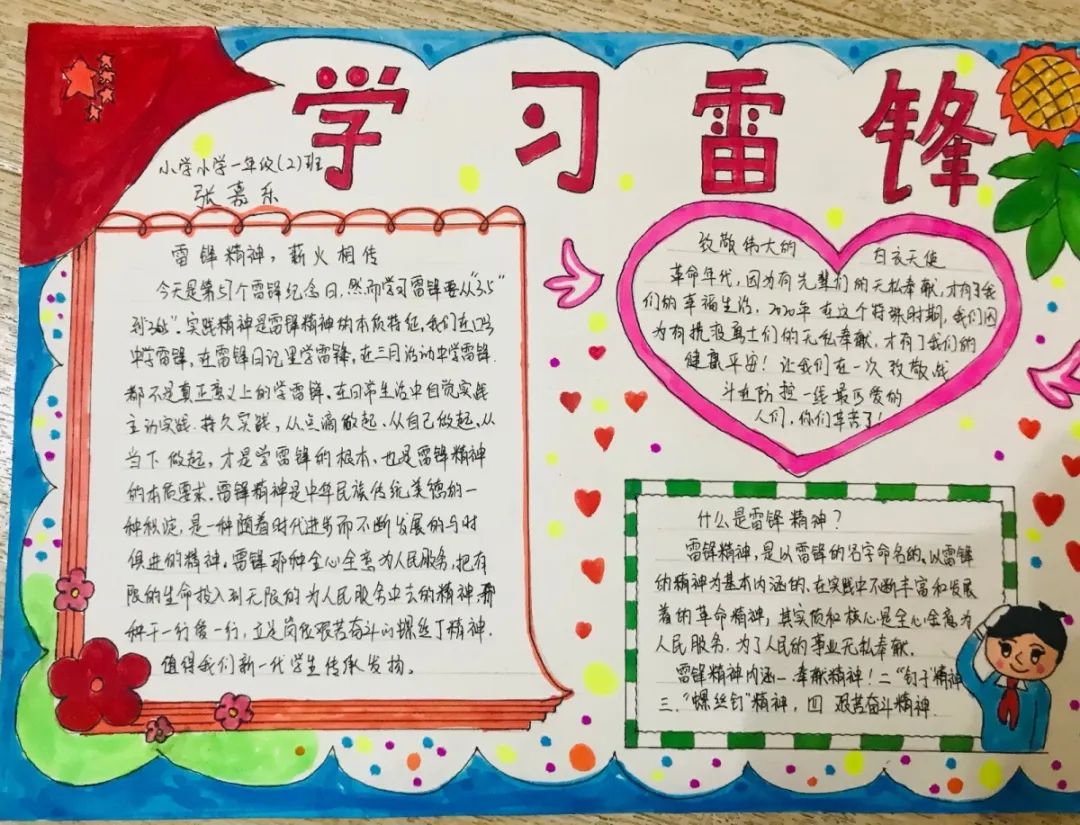 学习雷锋
小学小学一年级(2)班
张嘉乐
雷锋精神，薪火相传
今天是第57个雷锋纪念日，然而学习雷锋要从"3.5"
到"365"。实践精神是雷锋精神的本质特征，我们在口号
中学雷锋，在雷锋日记里学雷锋，在三月活动中学雷锋
都不是真正意义上的学雷锋。在日常生活中自觉实践
主动实践、持久实践，从点滴做起、从自己做起、从
当下做起，才是学雷锋的根本、也是雷锋精神
的本质要求。雷锋精神是中华民族传统美德的一
种积淀，是一种随着时代进步而不断发展的与时
俱进的精神。雷锋那种全心全意为人民服务，把有
限的生命投入到无限的为人民服务中去的精神，那
种干一行爱一行，立足岗位艰苦奋斗的螺丝丁精神，
值得我们新一代学生传承发扬。
致敬伟大的 白衣天使
革命年代，因为有先辈们的无私奉献，才有了我
们的幸福生活，2020年在这个特殊时期，我们因
为有抗疫勇士们的无私奉献，才有了我们的
健康平安！让我们在一次致敬战
斗在防控一线最可爱的
人们，你们辛苦了！
什么是雷锋精神？
雷锋精神，是以雷锋的名字命名的，以雷锋
的精神为基本内涵的、在实践中不断丰富和发展
着的革命精神，其实质和核心是全心全意为
人民服务，为了人民的事业无私奉献。
雷锋精神内涵一、奉献精神！二"钉子"精神
三、"螺丝钉"精神，四 艰苦奋斗精神